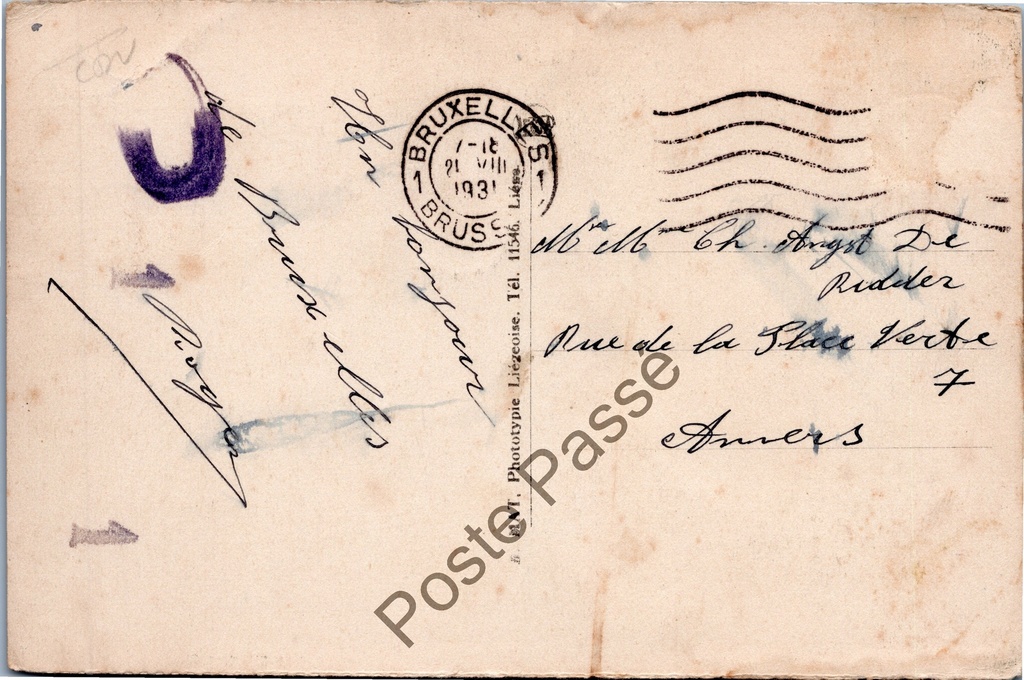 Un
bonjour
de
Bruxelles
Roger
1 BRUXELLES 1
7-18
21 VIII
1931
BRUSS
PHOT. Phototypie Liégeoise. Tél. 11546. Liége
Mr Mme Ch. Angst De
Ridder
Rue de la Place Verte
7
Anvers
1
1
Poste Passé